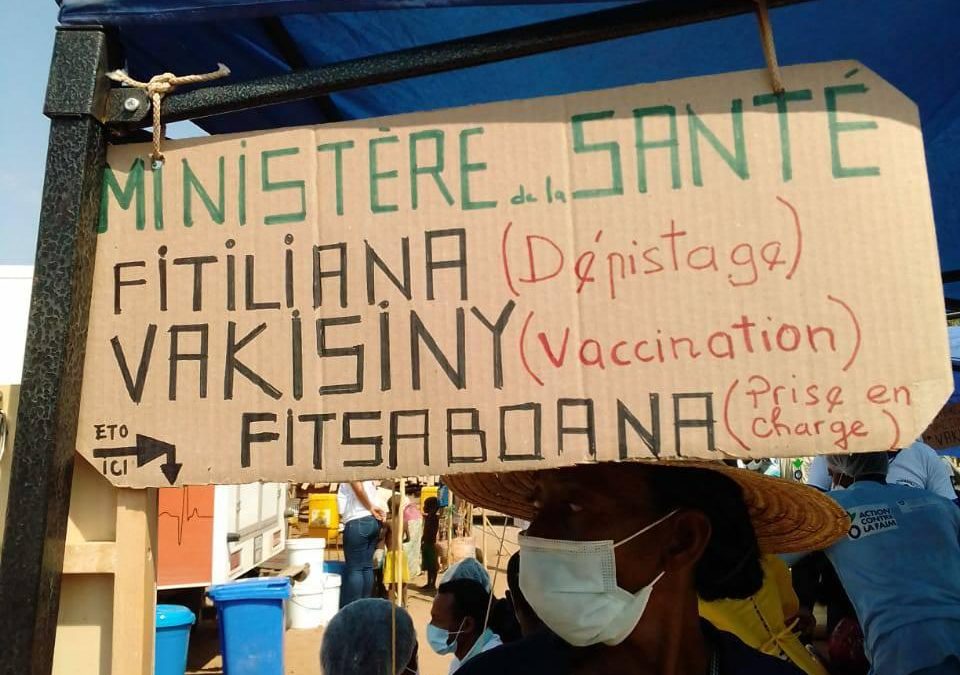 MINISTÈRE de la SANTÉ
FITILIANA (Dépistage)
VAKISINY (Vaccination)
FITSABOANA (Prise en charge)
ETO
ICI
ACTION
CONTRE
LA FAIM